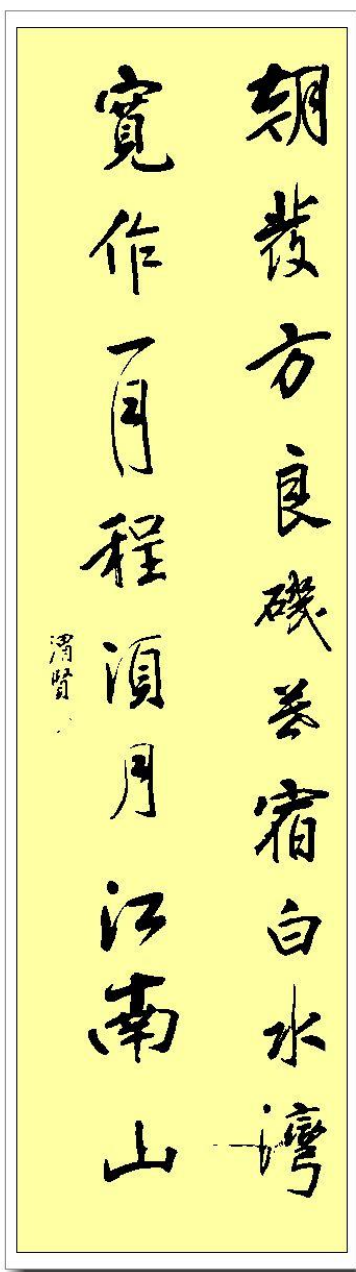 朝發方良磯暮宿白水灣
寬作一月程湏月江南山
渭賢